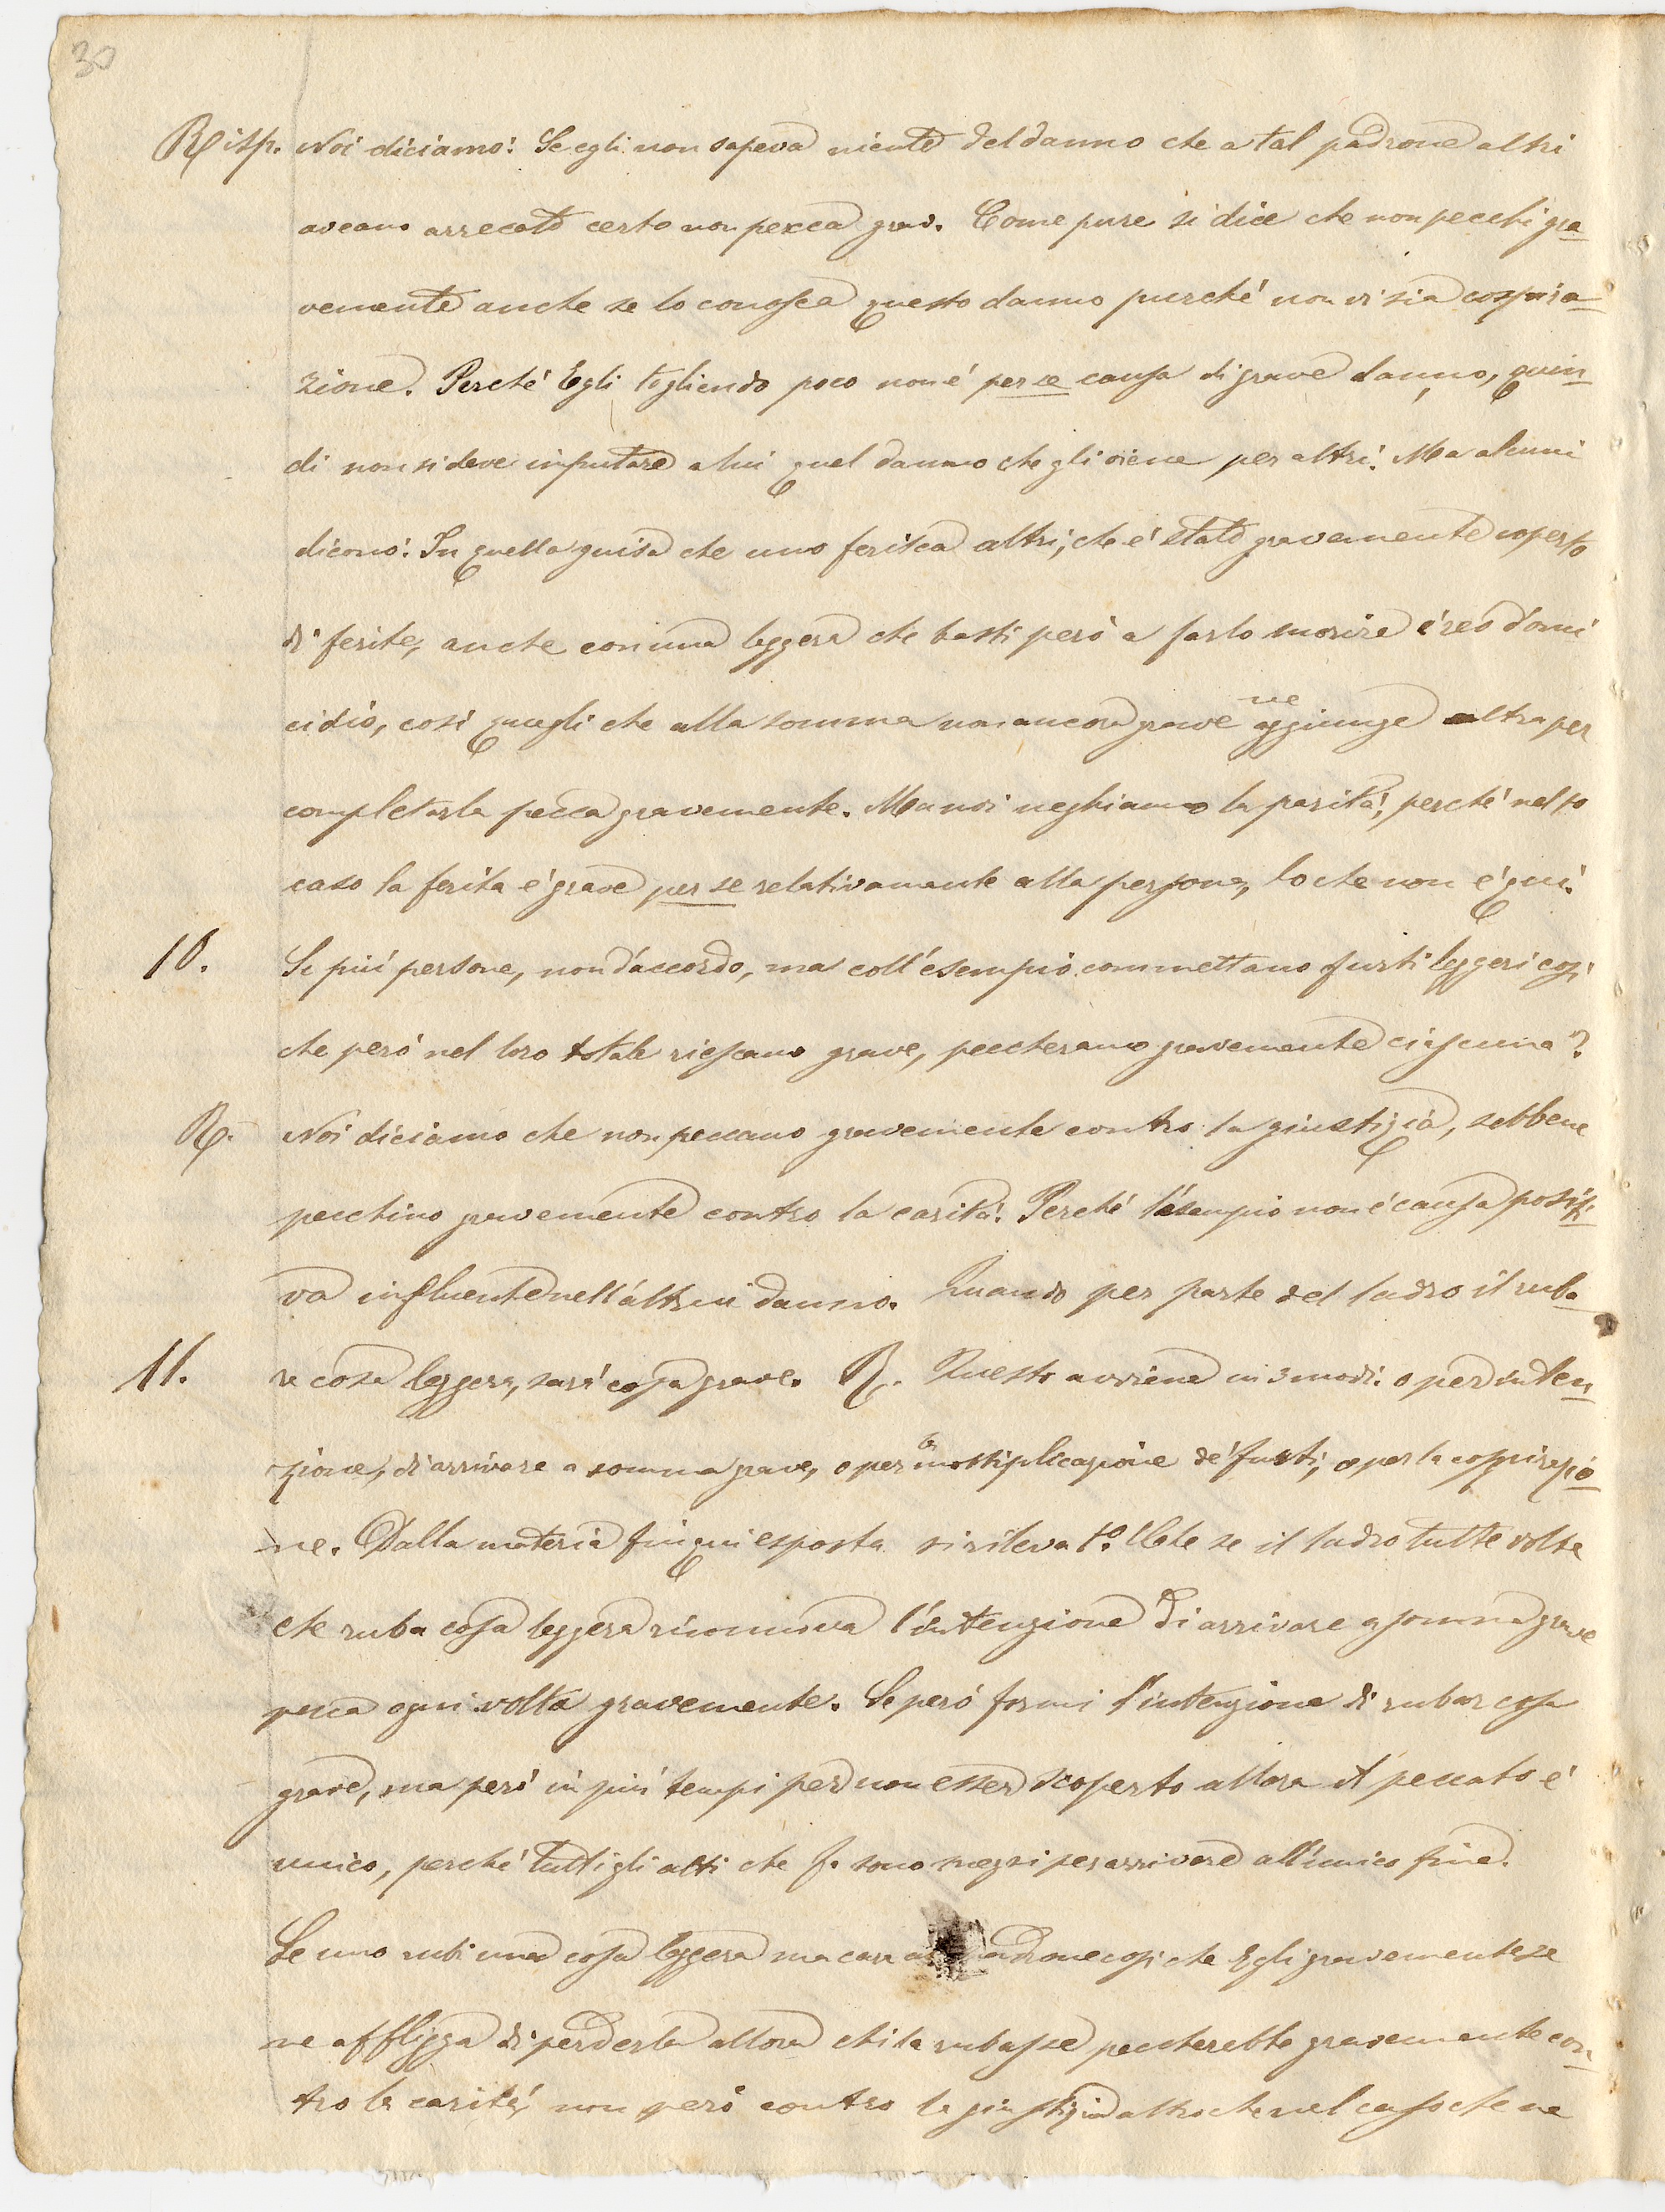 30
Risp. Noi diciamo: Se egli non sapeva niente del danno che a tal padrone altri
aveano arrecato certo non pecca grav. Come pure si dice che non pecchi gra
vemente anche se lo conosca questo danno purché non vi sia cospira
zione. Perché Egli togliendo poco non é per se causa di grave danno, quin
di non si deve imputare a lui quel danno che gli viene per altri. Ma alcuni
dicono: In quella guisa che uno ferisca altri, che é stato gravemente coperto
di ferite, anche con una leggera che basti peró a farlo morire é reo d'omi
cidio, cosí quegli che alla somma non ancora grave ne aggiunge altra per
completarla pecca gravemente. Ma noi neghiamo la paritá, perché nel 1o
caso la ferita é grave per se relativamente alla persona, lo che non é quí.
10. Se piú persone, non d'accordo, ma coll'esempio commettano furti leggeri cosí
che peró nel loro totale riescano grave, peccheranno gravemente ciascuna?
R. Noi diciamo che non peccano gravemente contro la giustizia, sebbene
pecchino gravemente contro la caritá. Perché l'esempio non é causa positi
va influente nell'altrui danno. Quando per parte del ladro il ruba
11. re cosa leggera, sará cosa grave. R. Questo avviene in 3 modi: o per inten
zione, di arrivare a somma grave, o per la moltiplicazione de' furti, o per la cospirazio
ne. Dalla materia fin qui esposta si rileva 1o. Che se il ladro tutte volte
che ruba cosa leggera rinnuova l'intenzione di arrivare a somma grave
pecca ogni volta gravemente. Se peró formi l'intenzione di rubar cosa
grave, ma peró in piú tempi per non esser scoperto allora il peccato é
unico, perché tutti gli atti che fa sono mezzi per arrivare all'unico fine.
Se uno rubi una cosa leggera ma cara al padrone cosí che Egli gravemente se
ne affligga di perderla allora chi la rubasse peccherebbe gravemente con
tro la caritá, non peró contro la giustizia altro che nel caso che ne